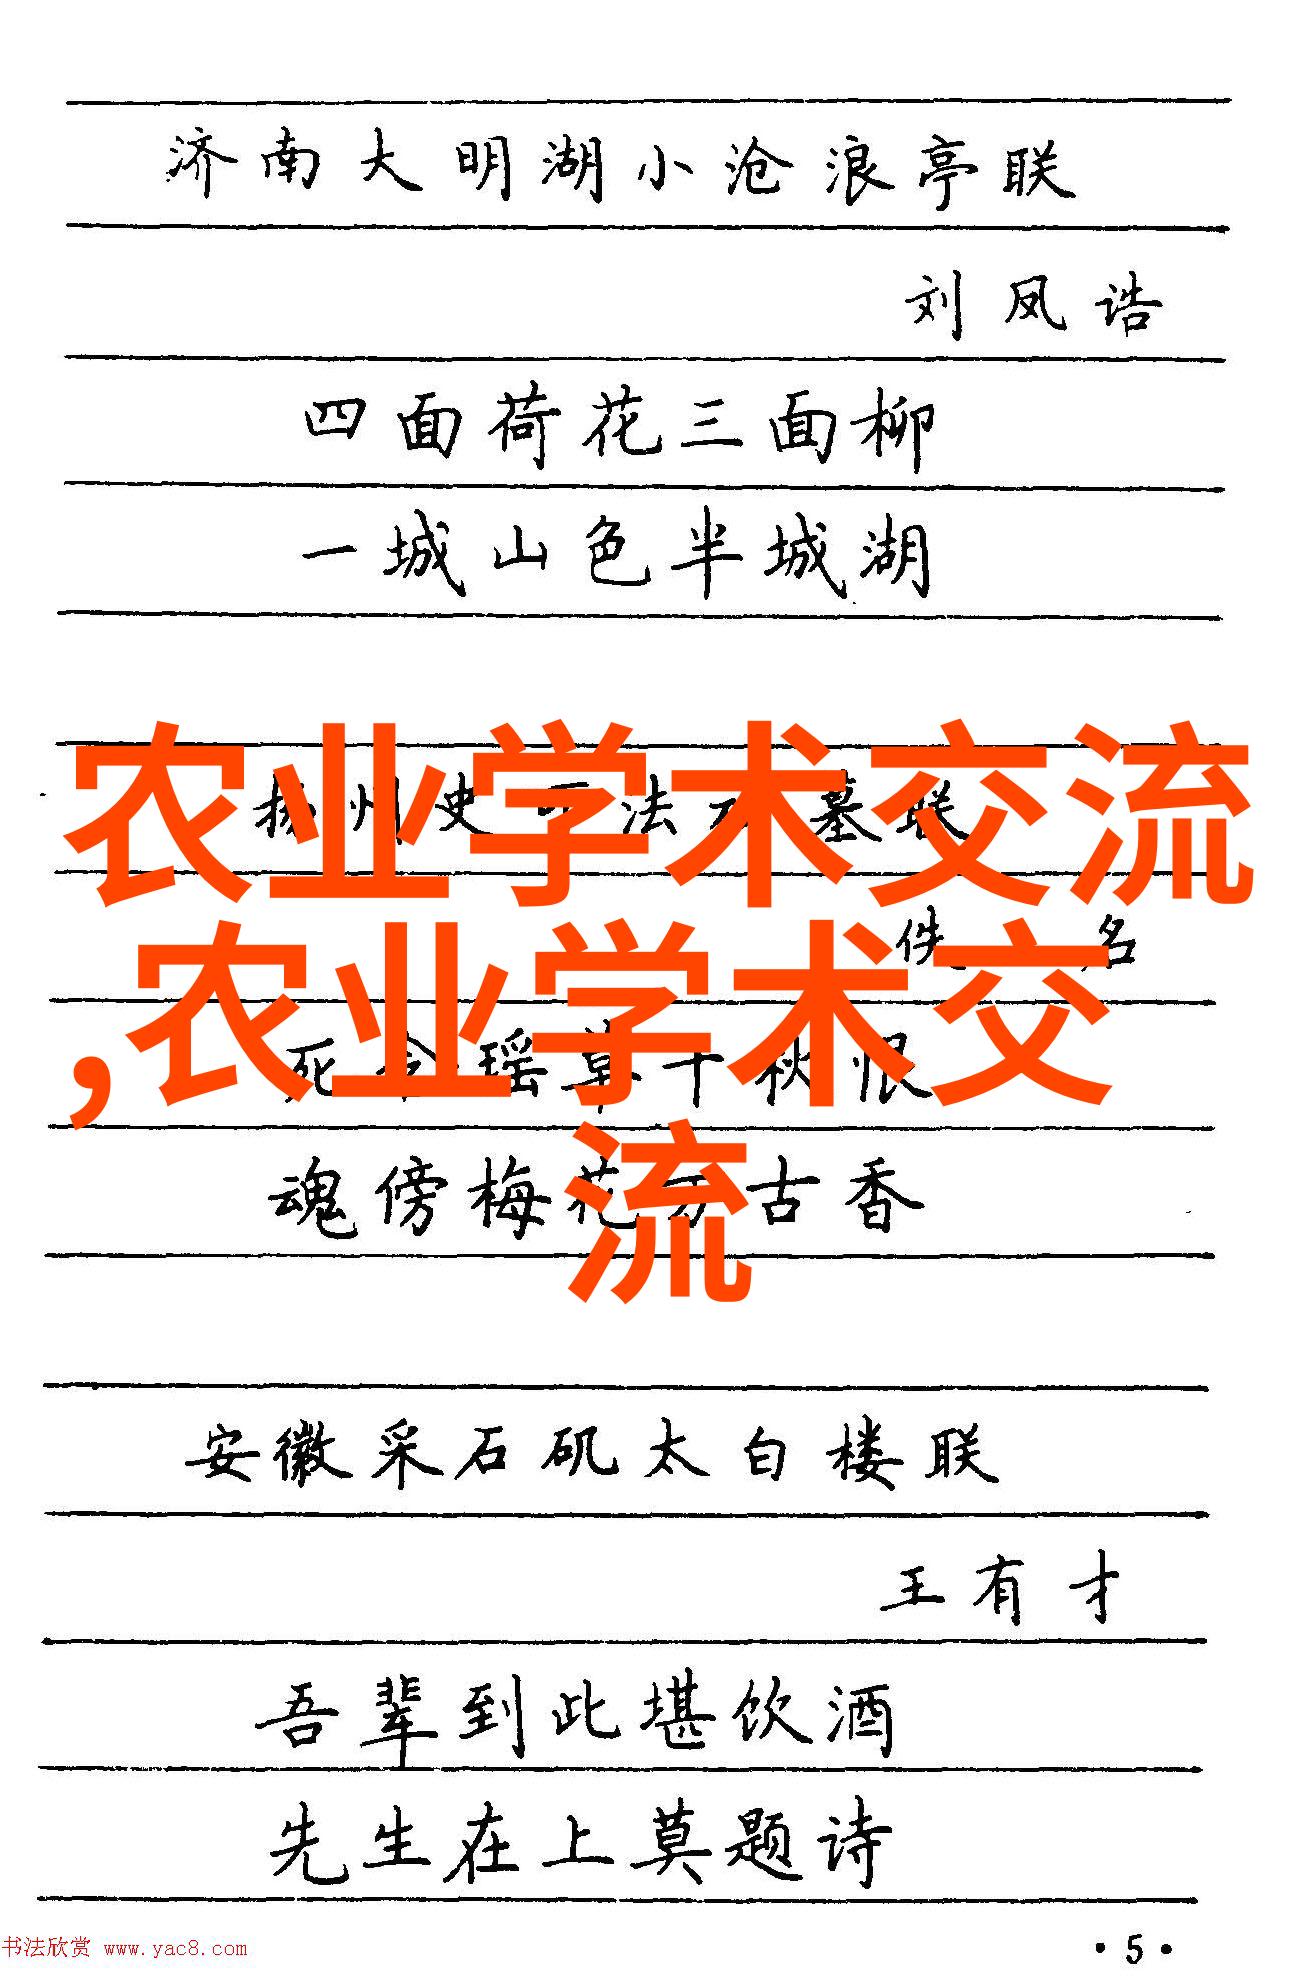 济南大明湖小沧浪亭联
刘凤诰
四面荷花三面柳
一城山色半城湖
农业学术交流
扬州史可法墓联
佚名
,农业学术交
死瑶草千秋恨
流
魂傍梅花万古香
安徽采石矶太白楼联
王有才
吾辈到此堪饮酒
先生在上莫题诗
书法欣赏 www.yac8.com
·5·